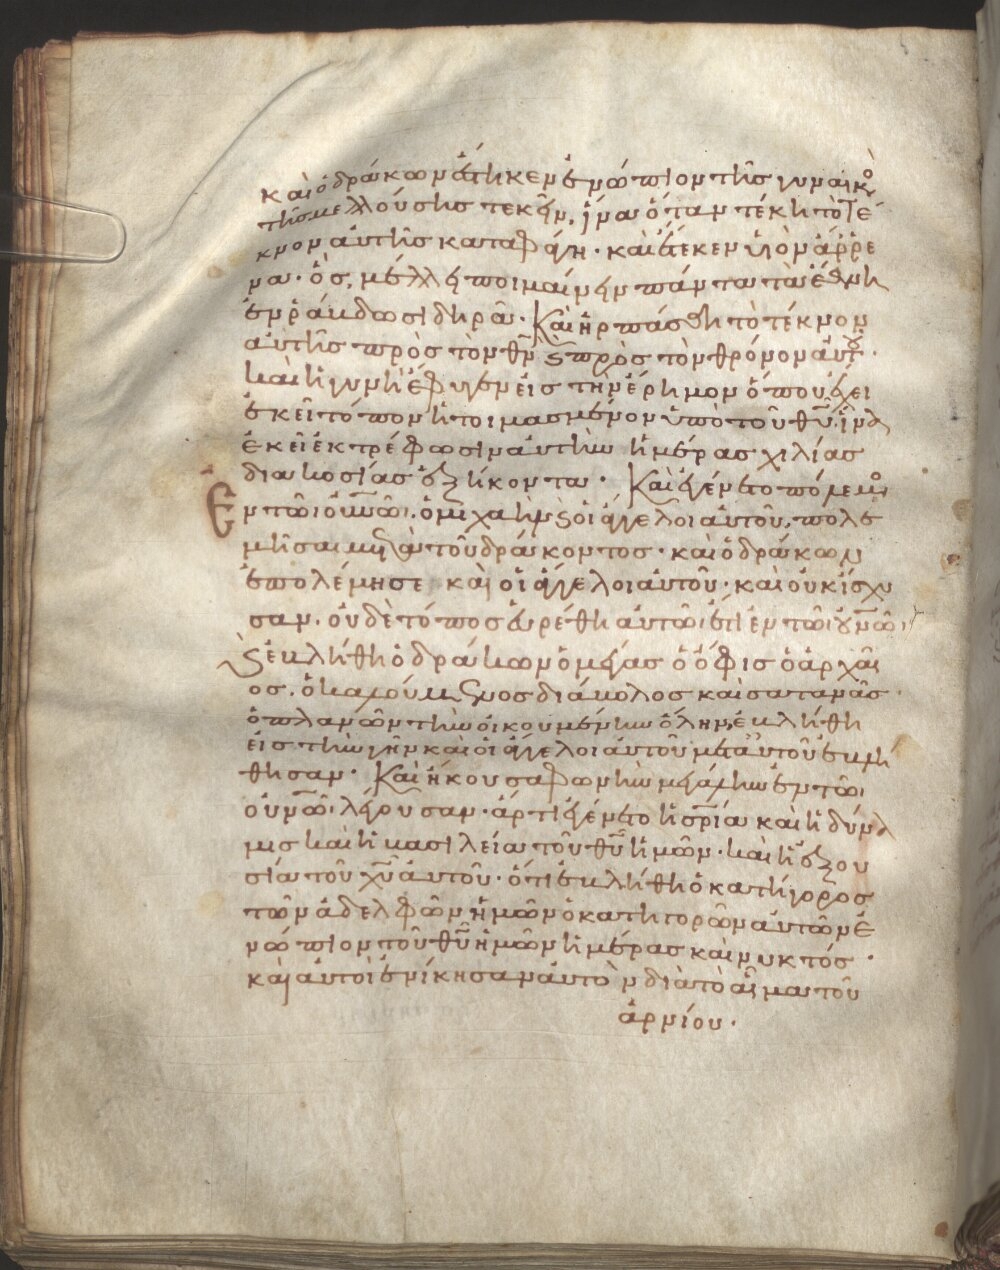 καὶ ὁ δράκων ἕστηκεν ἐνώπιον τῆς γυναικὸ
τῆς μελλούσης τεκεῖν, ἵνα ὅταν τέκη τὸ τέ
κνον αὐτῆς καταφάγη · καὶ ἔτεκεν υἱὸν ἄρρε
να · ὃς, μέλλει ποιμαίνειν πάντα τὰ ἔθνη
ἐν ῥάβδω σιδηρᾶ · Καὶ ἡρπάσθη τὸ τέκνον
αὐτῆς πρὸς τὸν θν ϛ πρὸς τὸν θρόνον αὐτοῦ ·
καὶ ἡ γυνὴ ἔφυγεν εἰς τὴν ἔρημον ὅπου ἔχει
ἐκεῖ τόπον ἡτοιμασμένον ὑπὸ τοῦ θυ. ἵνα
ἐκεῖ ἐκτρέφωσιν αὐτὴν ἡμέρας χιλίας
διακοσίας ἑξήκοντα · Καὶ ἐγένετο πόλεμο
Ἐν τῶ οὐνῶ. ὁ μιχαὴλ ϛ οἱ ἄγγελοι αὐτοῦ, πολε
μῆσαι μετὰ τοῦ δράκοντος · καὶ ὁ δράκων
ἐπολέμησε καὶ οἱ ἄγγελοι αὐτοῦ · καὶ οὐκ ἴσχυ
σαν · οὐδὲ τόπος εὑρέθη αὐτῶ ἔτι ἐν τῶ οὐνῶ,
ϛ ἐβλήθη ὁ δράκων ὁ μέγας ὁ ὄφις ὁ ἀρχαῖ
ος. ὁ καλούμενος διάβολος καὶ σατανᾶς ·
ὁ πλανῶν τὴν οἰκουμένην ὅλην, ἐβλήθη
εἰς τὴν γῆν καὶ οἱ ἄγγελοι αὐτοῦ μετ αὐτοῦ ἐβλή
θησαν · Καὶ ἤκουσα φωνὴν μεγάλην ἐν τῶ
οὐνῶ · λέγουσαν · ἄρτι ἐγένετο ἡ σρία καὶ ἡ δύνα
μις καὶ ἡ βασιλεία τοῦ θυ ἡμῶν · καὶ ἡ ἐξου
σία τοῦ χυ αὐτοῦ · ὅτι ἐβλήθη ὁ κατήγορος
τῶν ἀδελφῶν ἡμῶν ὁ κατηγορῶν αὐτῶν ἐ
νώπιον τοῦ θυ ἡμῶν ἡμέρας καὶ νυκτός ·
καὶ αὐτοὶ ἐνίκησαν αὐτὸν διὰ τὸ αἷμα τοῦ
ἀρνίου ·